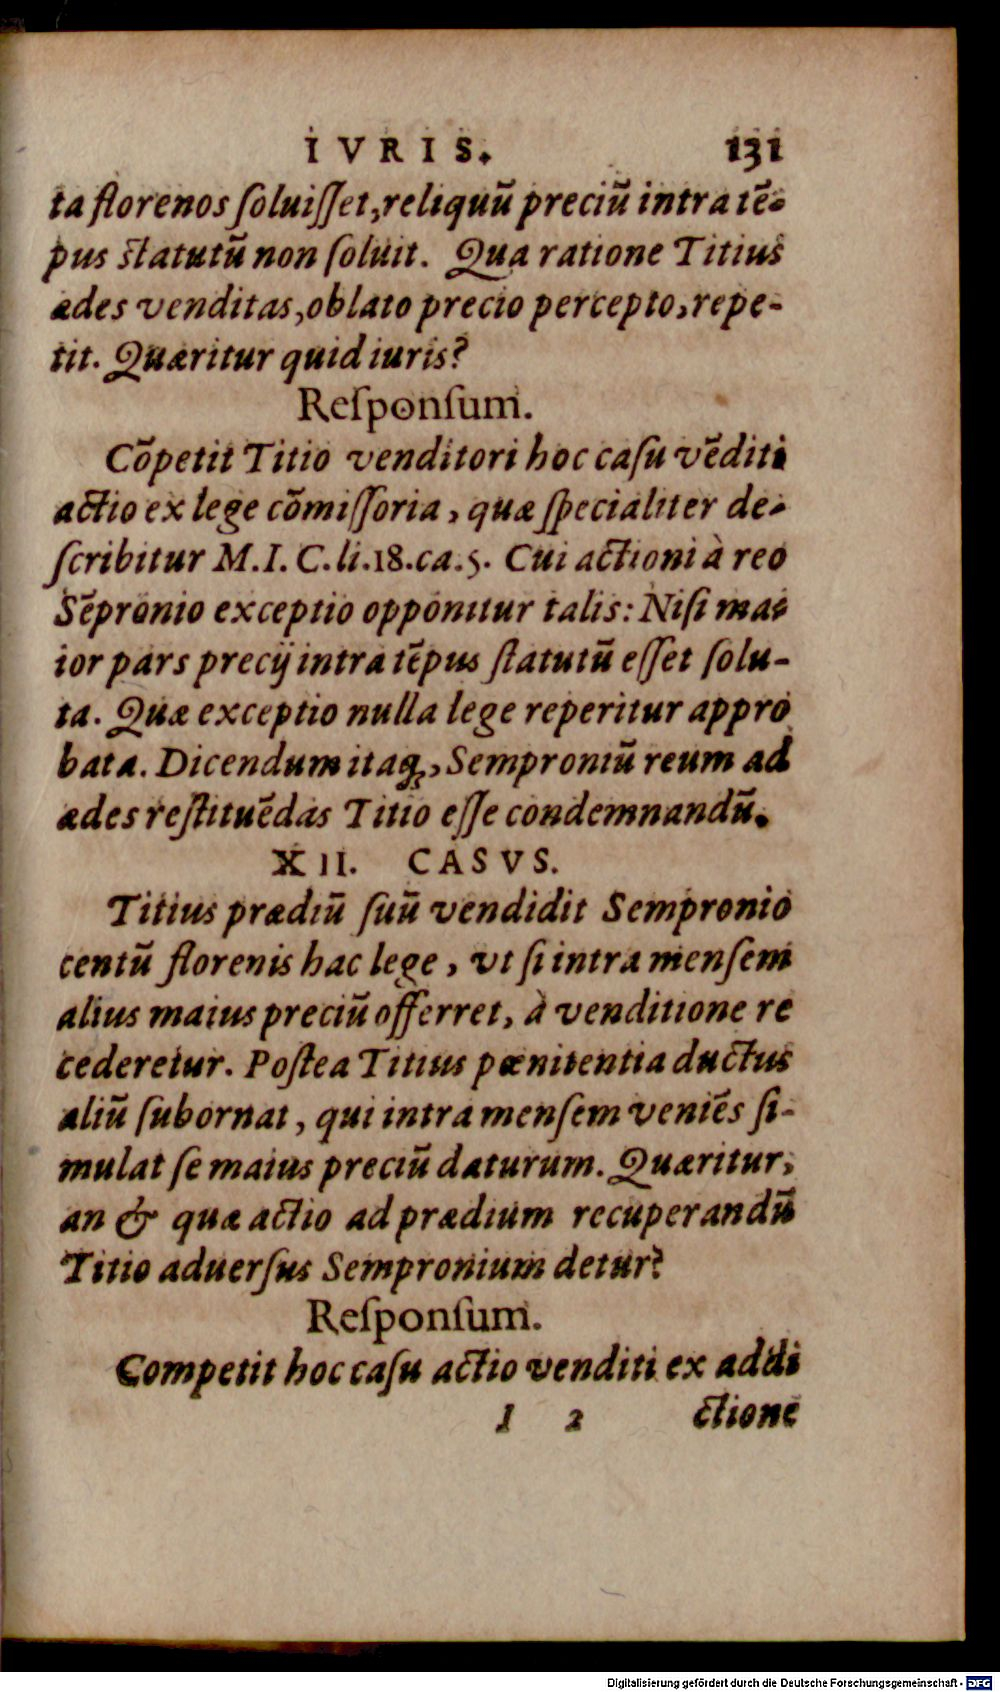 IVRIS. 131
ta florenos ſoluiſſet, reliquũ preciũ intra tẽ-
pus ſtatutũ non ſoluit. Qua ratione Titius
ædes venditas, oblato precio percepto, repe-
tit. Quæritur quid iuris?
Reſponſum.
Cõpetit Titio venditori hoc caſu vẽditi
actio ex lege cõmiſſoria, quæ ſpecialiter de-
ſcribitur M. I. C. li. 18. ca. 5. Cui actioni à reo
Sẽpronio exceptio opponitur talis: Niſi ma-
ior pars precij intra tẽpus ſtatutũ eſſet ſolu-
ta. Quæ exceptio nulla lege reperitur appro
bata. Dicendum itaq;, Semproniũ reum ad
ædes reſtituẽdas Titio eſſe condemnandũ.
XII. CASVS.
Titius prædiũ ſuũ vendidit Sempronio
centũ florenis hac lege, vt ſi intra menſem
alius maius preciũ offerret, à venditione re
cederetur. Poſtea Titius pœnitentia ductus
aliũ ſubornat, qui intra menſem veniẽs ſi-
mulat ſe maius preciũ daturum. Quæritur,
an & quæ actio ad prædium recuperandũ
Titio aduerſus Sempronium detur?
Reſponſum.
Competit hoc caſu actio venditi ex addi
I 2 ctione
Digitalisierung gefördert durch die Deutsche Forschungsgemeinschaft - DFG